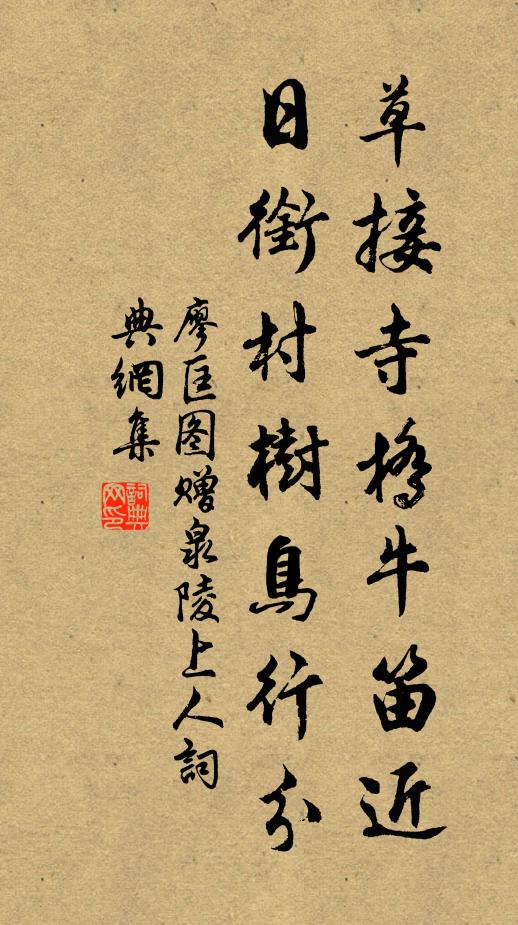 草接寺橋牛笛近
日銜村樹鳥行分
廖匡图赠泉陵上人詞
典網集
詞典网印